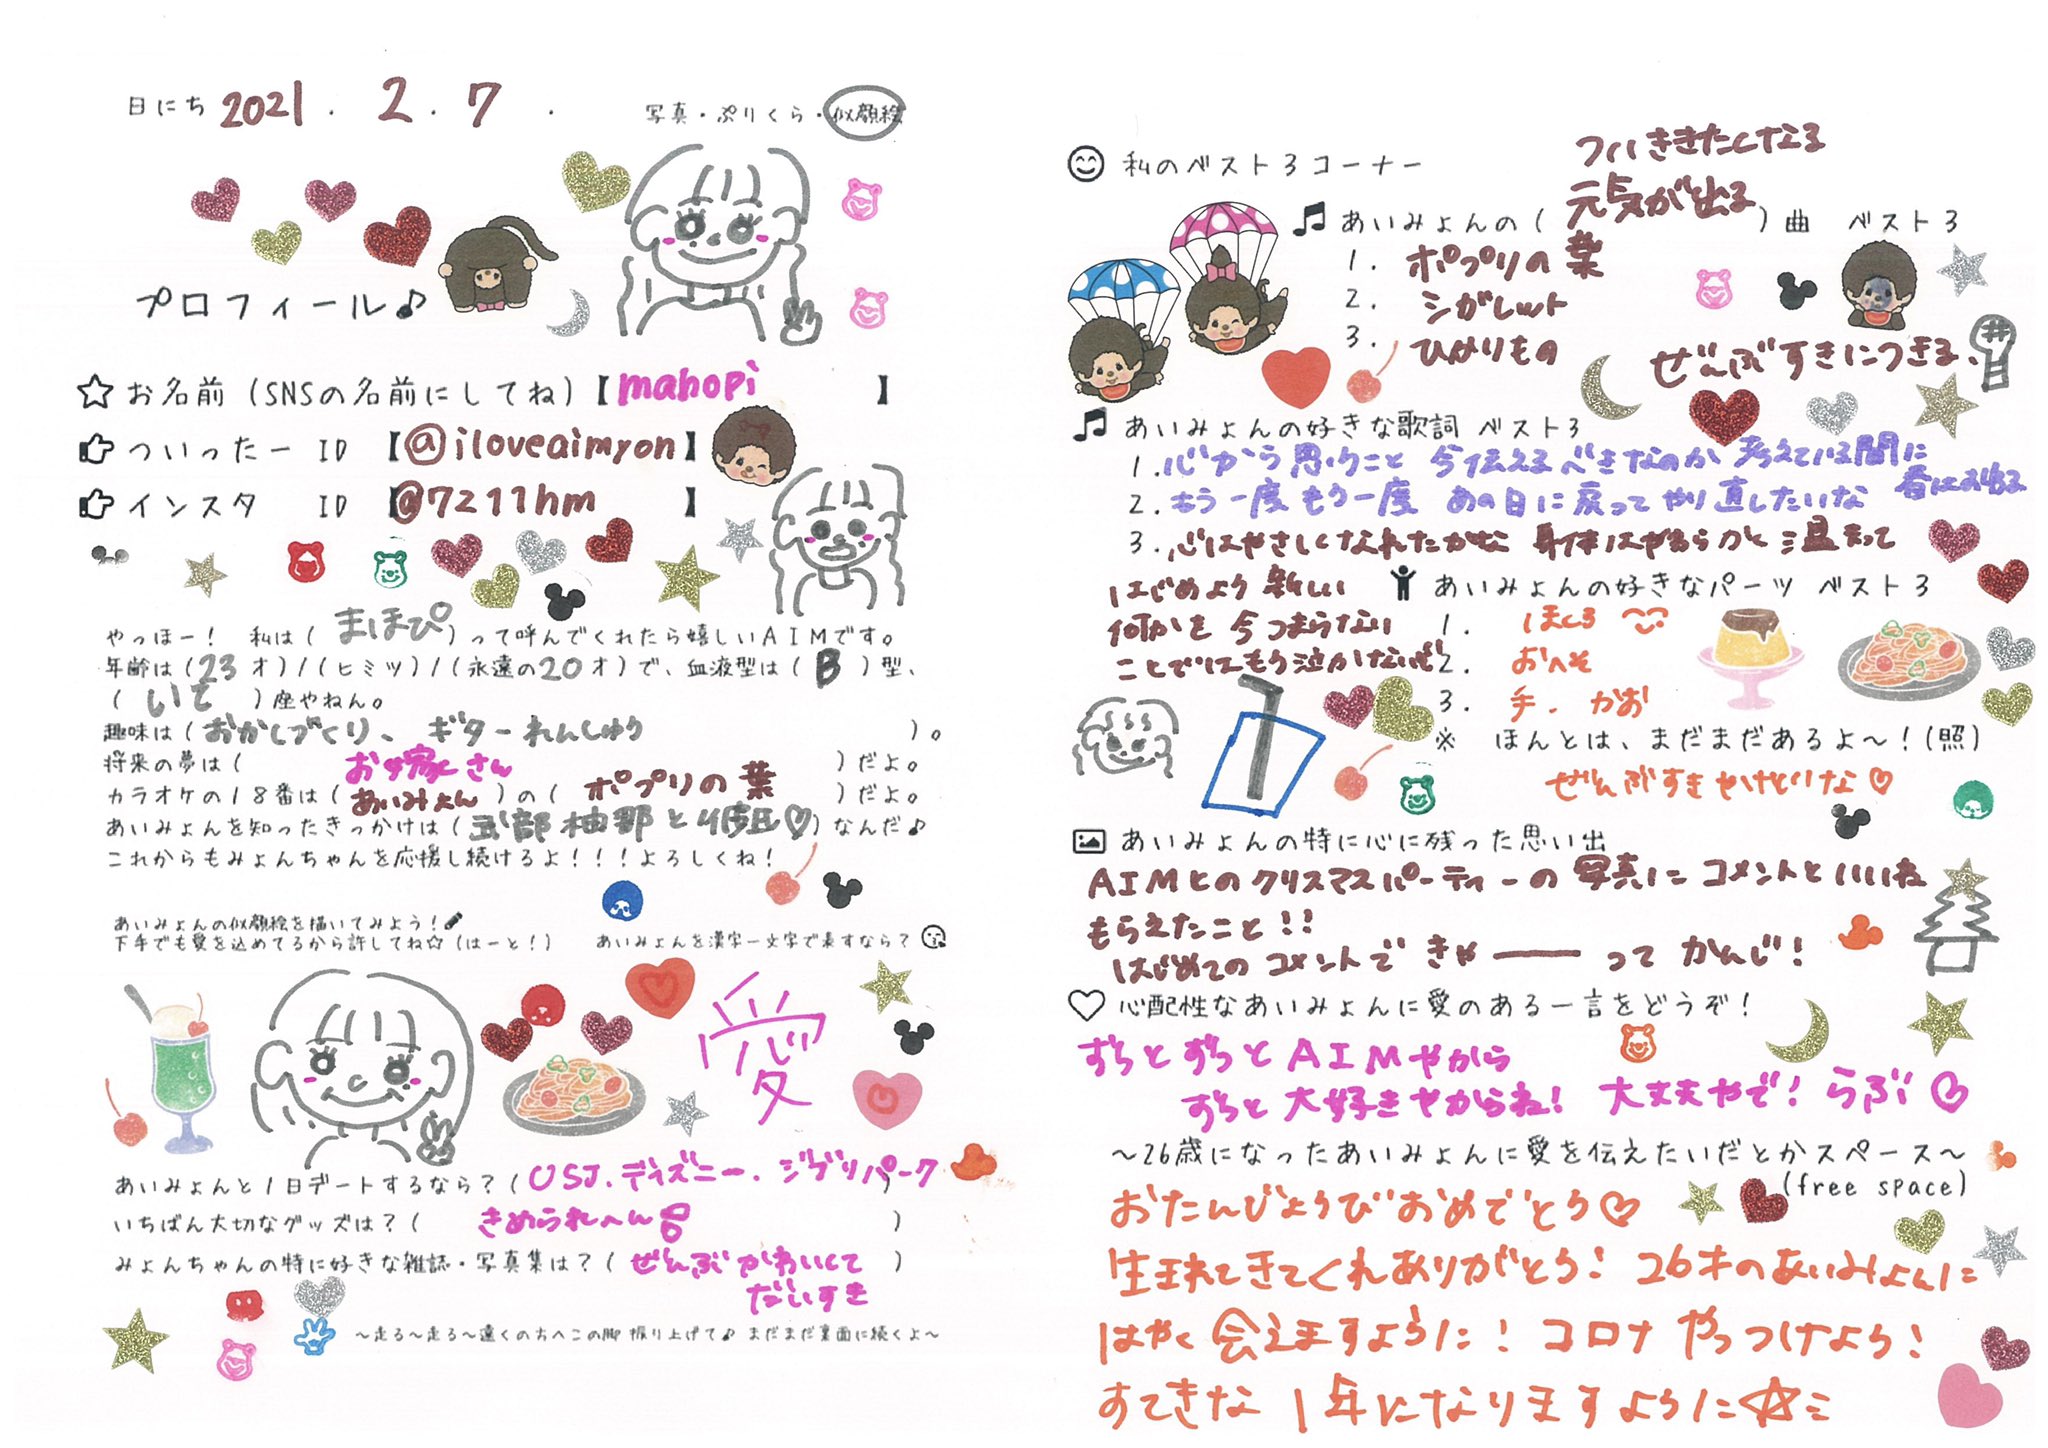 日にち 2021. 2. 7.
写真・ぷりくら・似顔絵
プロフィール♪
☆お名前(SNSの名前にしてね)【mahopi】
ついったー ID 【@iloveaimyon】
インスタ ID 【@7211hm】
やっほー! 私は(まほぴ)って呼んでくれたら嬉しいAIMです。
年齢は(23才)/(ヒミツ)/(永遠の20才)で、血液型は(B)型、
(いて)座やねん。
趣味は(おかしづくり、ギターれんしゅう)。
将来の夢は(およめさん)だよ。
カラオケの18番は(あいみょん)の(ポプリの葉)だよ。
あいみょんを知ったきっかけは(武部柚那と仮屋♡)なんだ♪
これからもみょんちゃんを応援し続けるよ!!!よろしくね!
あいみょんの似顔絵を描いてみよう!
下手でも愛を込めてるから許してね☆(はーと!)
あいみょんを漢字一文字で表すなら?
愛
あいみょんと1日デートするなら?(USJ.ディズニー.ジブリパーク)
いちばん大切なグッズは?(きめられへん)
みょんちゃんの特に好きな雑誌・写真集は?(ぜんぶかわいくて
だいすき)
~走る~走る~遠くの方へこの脚 振り上げて♪ まだまだ裏面に続くよ~
私のベスト3コーナー
ついききたくなる
元気が出る
♫あいみょんの( )曲 ベスト3
1. ポプリの葉
2. シガレット
3. ひかりもの
ぜんぶすきにつきる、
♫あいみょんの好きな歌詞 ベスト3
1. 心から思うこと 今伝えるべきなのか 考えている間に
春はお化る
2. もう一度もう一度 あの日に戻ってやり直したいな
3. 心はやさしくなれたかな 身体はやわらかと温まって
はじめより新しい
何かを今つまらない
ことではもう泣かないぞ
あいみょんの好きなパーツ ベスト3
1. ほくろ
2. おへそ
3. 手、かお
※ ほんとは、まだまだあるよ~!(照)
ぜんぶすきやけどりな♡
あいみょんの特に心に残った思い出
AIMとのクリスマスパーティーの写真にコメントといいね
もらえたこと!!
はじめてのコメントできゃーーってかんじ!
♡心配性なあいみょんに愛のある一言をどうぞ!
ずっとずっとAIMやから
ずっと大好きやからね! 大丈夫やで! らぶ♡
~26歳になったあいみょんに愛を伝えたいだとかスペース~
(free space)
おたんじょうびおめでとう♡
生まれてきてくれありがとう! 26才のあいみょんに
はやく会えますように! コロナやっつけよう!
すてきな1年になりますように☆ミ